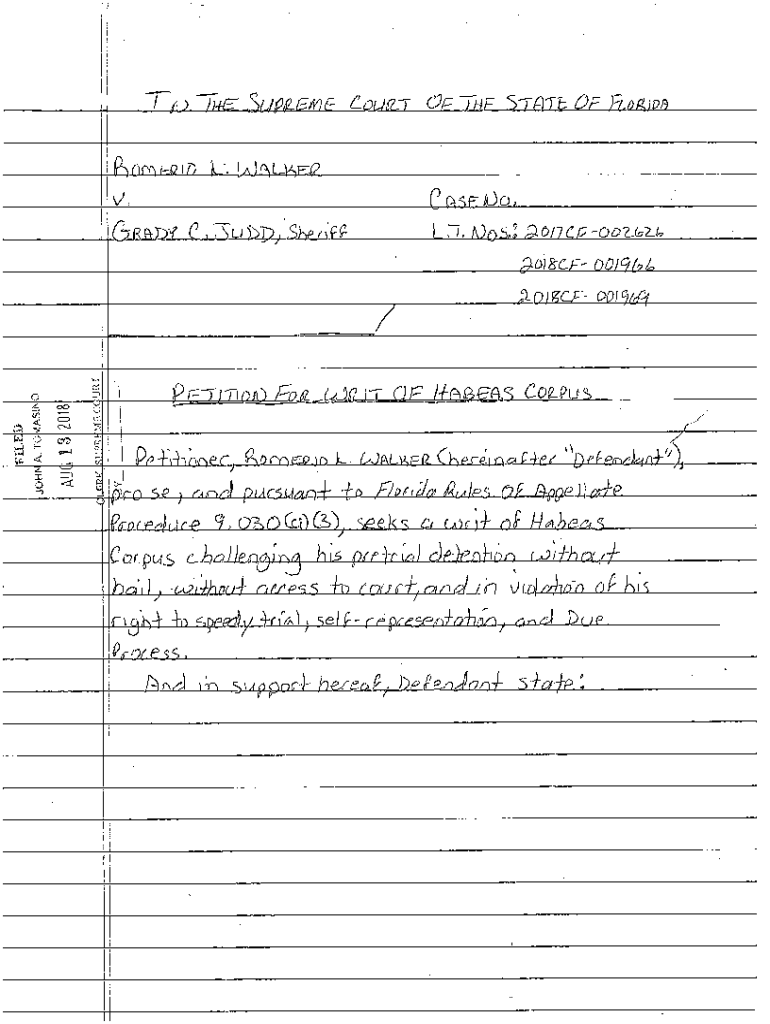 IN THE SUPREME COURT OF THE STATE OF FLORIDA
ROMERIO L. WALKER
V.
CASE NO.
GRADY C. JUDD, Sheriff
L.T. NOS: 2017CF-002626
2018CF-001966
2018CF-001969
PETITION FOR WRIT OF HABEAS CORPUS
FILED
JOHN A. TOMASINO
AUG 13 2018
CLERK, SUPREME COURT
BY
Petitioner, ROMERIO L. WALKER (hereinafter "Defendant"),
pro se, and pursuant to Florida Rules Of Appellate
Proceduce 9.030(a)(3), seeks a writ of Habeas
Corpus challenging his pretrial detention without
bail, without access to court, and in violation of his
right to speedy trial, self-representation, and Due
Process.
And in support hereof, Defendant state: